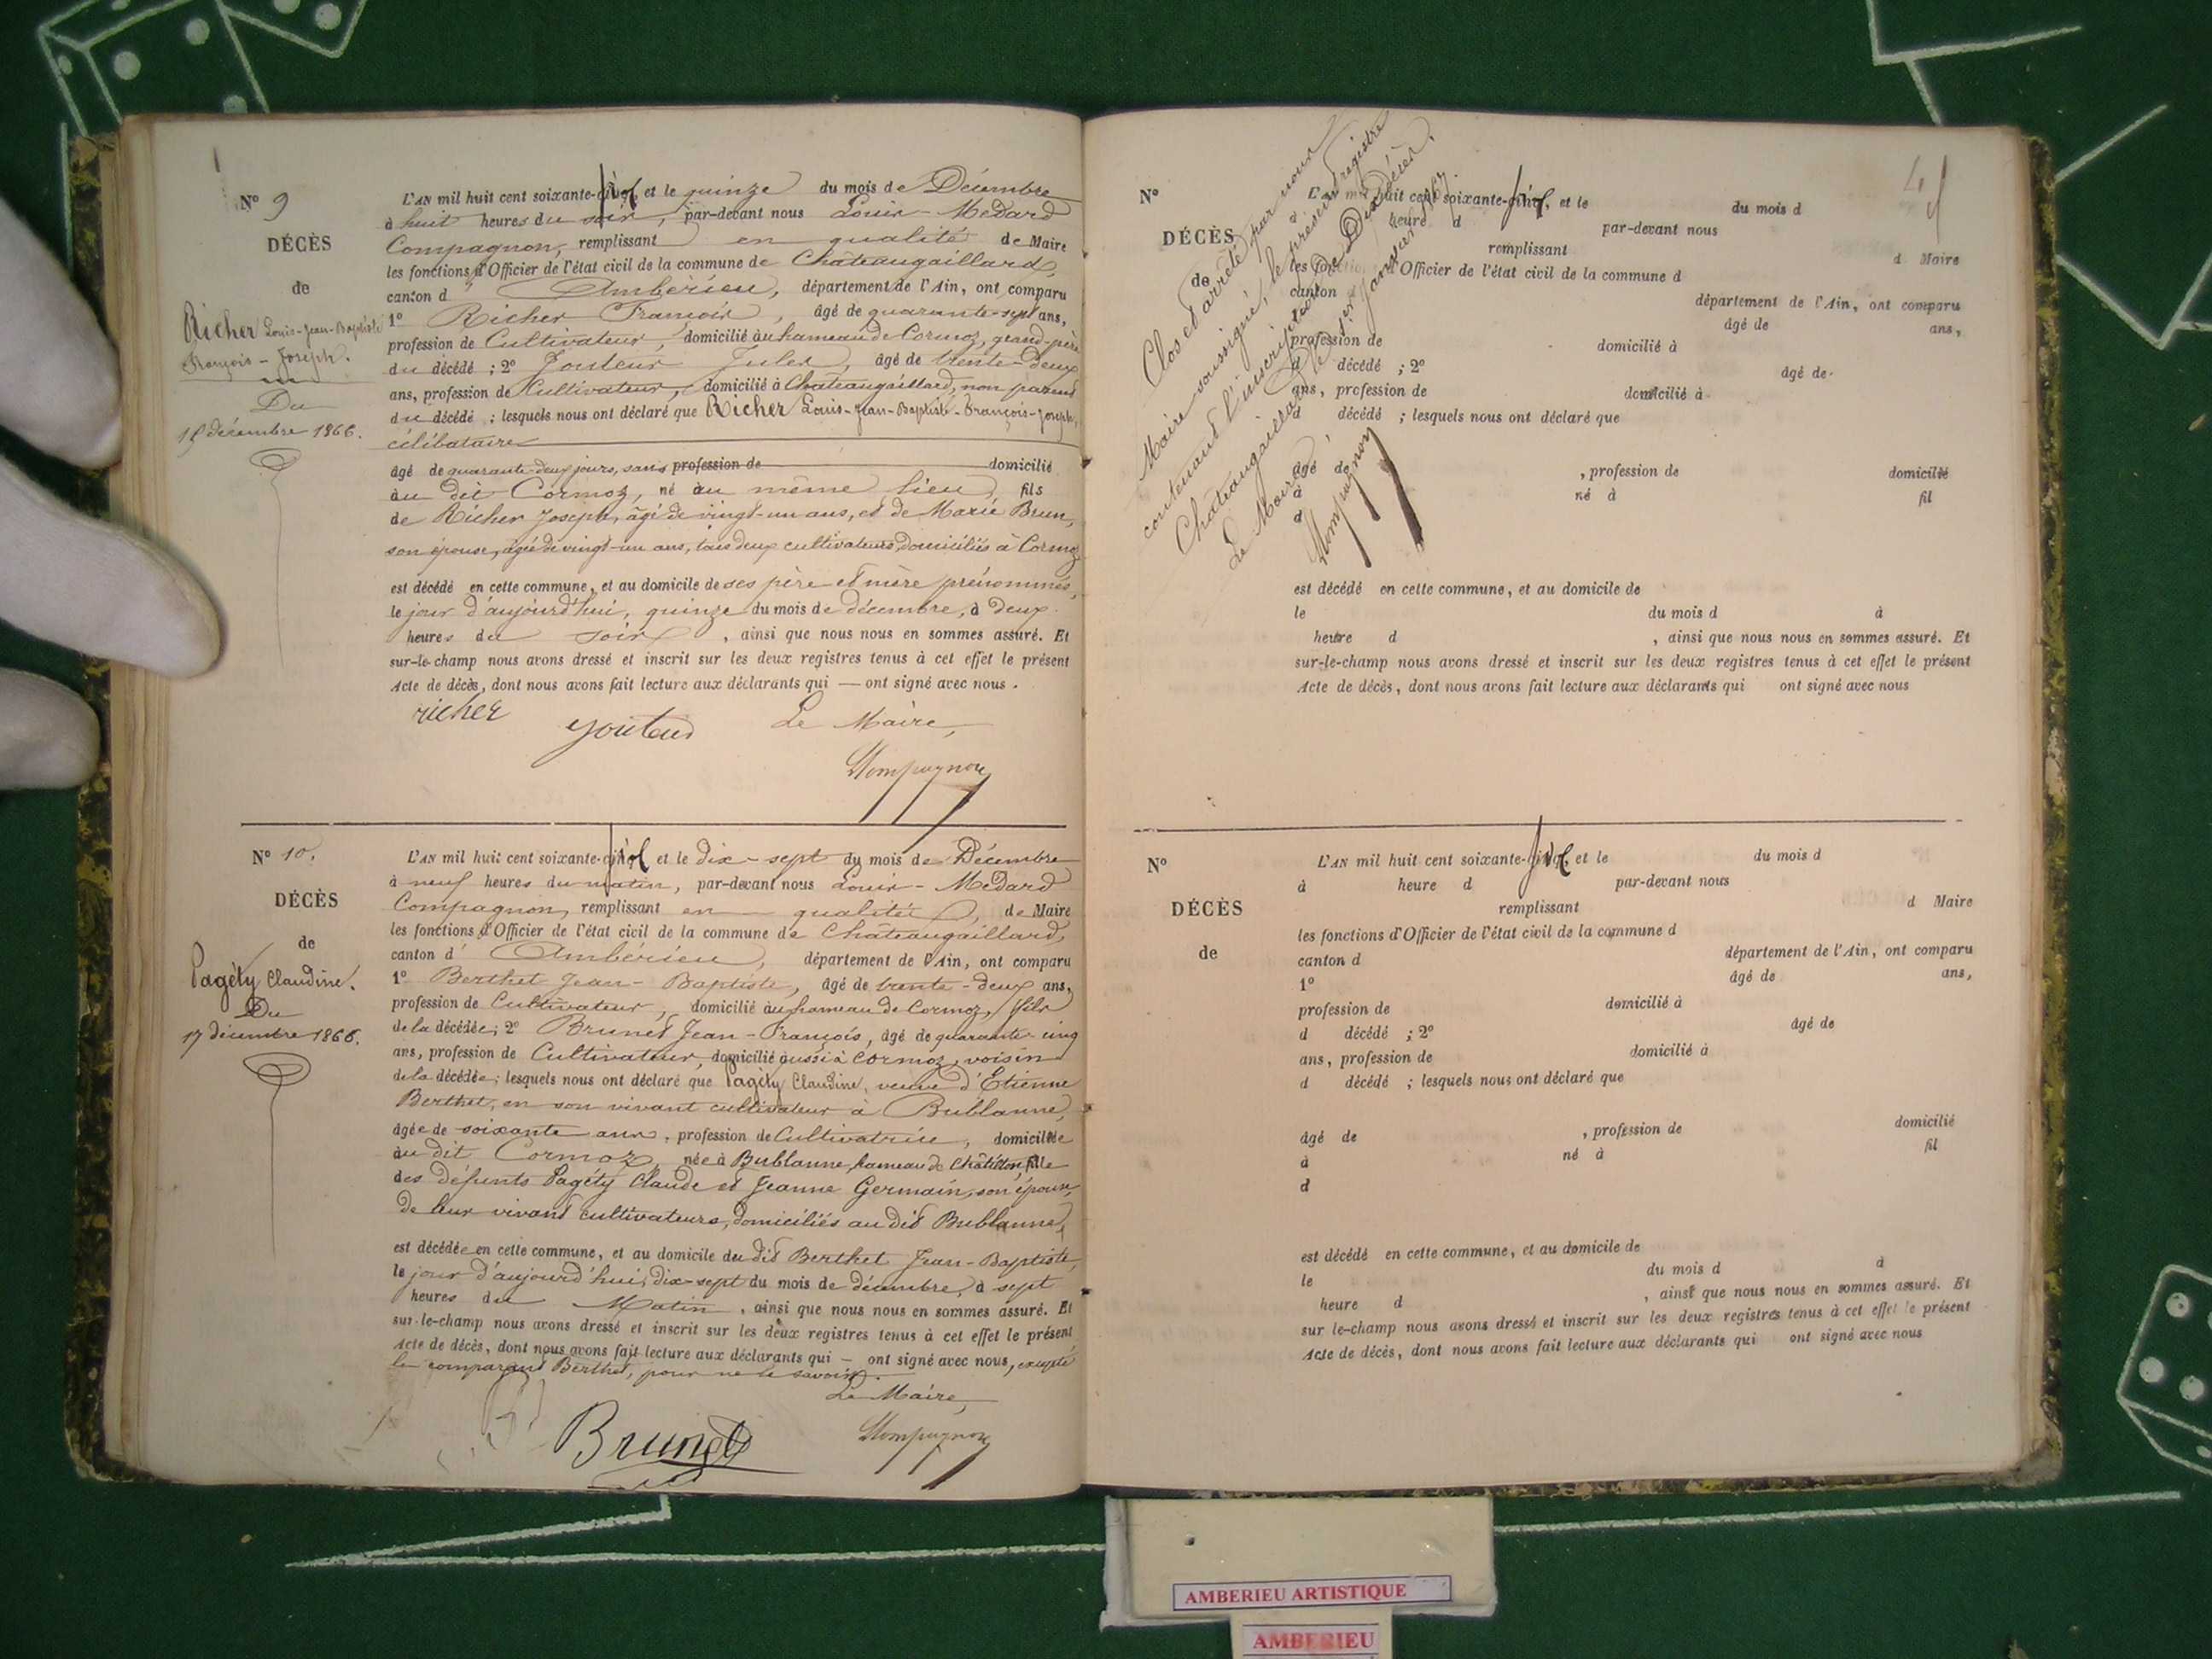 N° 9
DÉCÈS
de
Richer Louis-Jean-Baptiste
François-Joseph.
Du
15 décembre 1866.
L'AN mil huit cent soixante-six et le quinze du mois de Décembre
à huit heures du soir, par-devant nous Louis-Médard
Compagnon, remplissant en qualité de Maire
les fonctions d'Officier de l'état civil de la commune de Châteaugaillard,
canton d'Ambérieu, département de l'Ain, ont comparu
1° Richer François, âgé de quarante-sept ans,
profession de Cultivateur, domicilié au hameau de Cormoz, grand-père
du décédé ; 2° Jouteur Jules, âgé de trente-deux
ans, profession de Cultivateur, domicilié à Châteaugaillard, non parent
du décédé ; lesquels nous ont déclaré que Richer Louis-Jean-Baptiste-François-Joseph,
célibataire
âgé de quarante-deux jours, sans profession de domicilié
au dit Cormoz, né au même lieu, fils
de Richer Joseph, âgé de vingt-un ans, et de Marie Brun,
son épouse, âgée de vingt-un ans, tous deux cultivateurs, domiciliés à Cormoz
est décédé en cette commune, et au domicile de ses père et mère prénommés,
le jour d'aujourd'hui, quinze du mois de décembre, à deux
heures du soir, ainsi que nous nous en sommes assuré. Et
sur-le-champ nous avons dressé et inscrit sur les deux registres tenus à cet effet le présent
Acte de décès, dont nous avons fait lecture aux déclarants qui — ont signé avec nous.
richer
Le Maire,
Compagnon
N° 10.
DÉCÈS
de
Pagéty Claudine.
Du
17 décembre 1866.
L'AN mil huit cent soixante-six et le dix-sept du mois de Décembre
à neuf heures du matin, par-devant nous Louis-Médard
Compagnon, remplissant en qualité, de Maire
les fonctions d'Officier de l'état civil de la commune de Châteaugaillard,
canton d'Ambérieu, département de l'Ain, ont comparu
1° Berthet Jean-Baptiste, âgé de trente-deux ans,
profession de Cultivateur, domicilié au hameau de Cormoz, fils
de la décédée ; 2° Brunet Jean-François, âgé de quarante-cinq
ans, profession de Cultivateur, domicilié aussi à Cormoz, voisin
de la décédée ; lesquels nous ont déclaré que Pagéty Claudine, veuve d'Etienne
Berthet, en son vivant cultivateur à Bublanne,
âgée de soixante ans, profession de Cultivatrice, domiciliée
au dit Cormoz, née à Bublanne, hameau de Châtillon, fille
des défunts Pagéty Claude et Jeanne Germain, son épouse,
de leur vivant cultivateurs, domiciliés au dit Bublanne,
est décédée en cette commune, et au domicile du dit Berthet Jean-Baptiste,
le jour d'aujourd'hui, dix-sept du mois de décembre, à sept
heures du Matin, ainsi que nous nous en sommes assuré. Et
sur-le-champ nous avons dressé et inscrit sur les deux registres tenus à cet effet le présent
Acte de décès, dont nous avons fait lecture aux déclarants qui — ont signé avec nous, excepté
le comparant Berthet, pour ne le savoir.
Le Maire,
Brunet
Compagnon
Clos et arrêté par nous
Maire soussigné, le présent registre
contenant l'inscription de Dix décès.
Châteaugaillard, le 1er janvier 1867.
Le Maire,
Compagnon
N°
DÉCÈS
de
L'AN mil huit cent soixante-six, et le du mois d
à heure d par-devant nous
remplissant d Maire
les fonctions d'Officier de l'état civil de la commune d
canton d département de l'Ain, ont comparu
âgé de ans,
profession de domicilié à
d décédé ; 2° âgé de
ans, profession de domicilié à
d décédé ; lesquels nous ont déclaré que
âgé de , profession de domicilié
à né à fil
d
est décédé en cette commune, et au domicile de
le du mois d à
heure d , ainsi que nous nous en sommes assuré. Et
sur-le-champ nous avons dressé et inscrit sur les deux registres tenus à cet effet le présent
Acte de décès, dont nous avons fait lecture aux déclarants qui ont signé avec nous
N°
DÉCÈS
de
L'AN mil huit cent soixante-six, et le du mois d
à heure d par-devant nous
remplissant d Maire
les fonctions d'Officier de l'état civil de la commune d
canton d département de l'Ain, ont comparu
1° âgé de ans,
profession de domicilié à
d décédé ; 2° âgé de
ans, profession de domicilié à
d décédé ; lesquels nous ont déclaré que
âgé de , profession de domicilié
à né à fil
d
est décédé en cette commune, et au domicile de
le du mois d à
heure d , ainsi que nous nous en sommes assuré. Et
sur le-champ nous avons dressé et inscrit sur les deux registres tenus à cet effet le présent
Acte de décès, dont nous avons fait lecture aux déclarants qui ont signé avec nous
AMBERIEU ARTISTIQUE
AMBERIEU